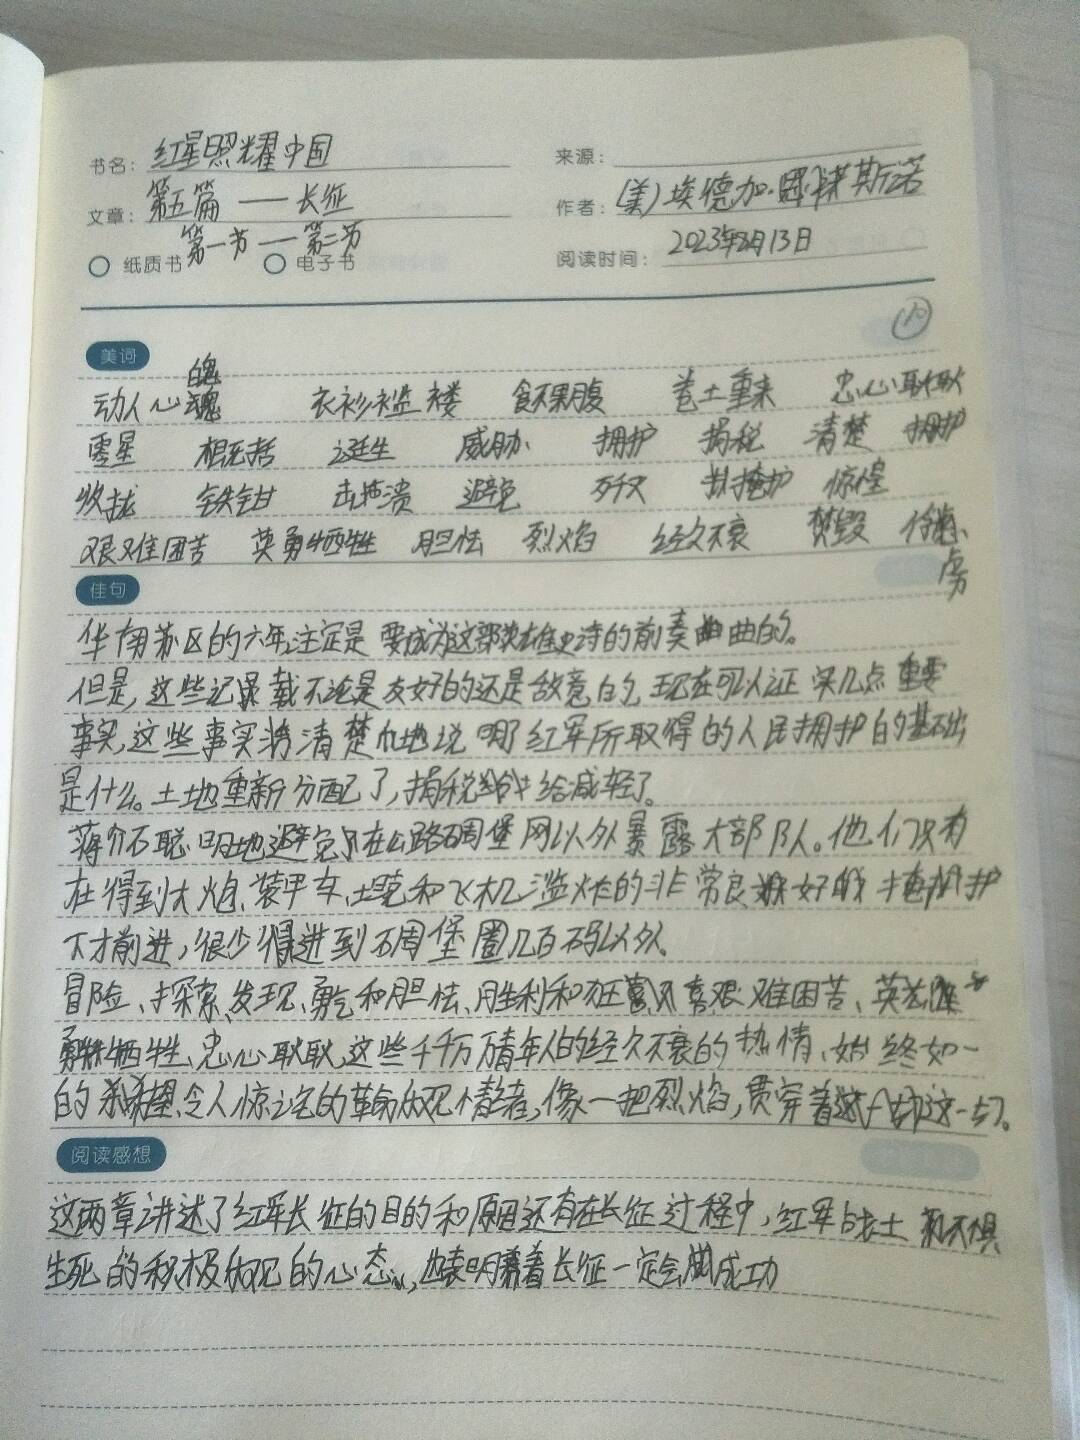 书名: 红星照耀中国
来源:
文章: 第五篇 —— 长征
作者: (美)埃德加·斯诺
第一节 — 第二节
纸质书
电子书
阅读时间: 2023年8月13日
10
美词
动人心魄 衣衫褴褛 食不果腹 卷土重来 忠心耿耿
零星 概括 诞生 威胁 拥护 捐税 清楚 拥护
收拢 铁钳 击溃 避免 歼灭 掩护 惊惶
艰难困苦 英勇牺牲 胆怯 烈焰 经久不衰 焚毁 俘虏
佳句
华南苏区的六年注定是要成为这部英雄史诗的前奏曲的。
但是,这些记录载不论是友好的还是敌意的,现在可以证实几点重要
事实,这些事实将清楚地说明了红军所取得的人民拥护的基础
是什么。土地重新分配了,捐税给减轻了。
蒋介石聪明地避免在公路碉堡网以外暴露大部队。他们只有
在得到大炮、装甲车、坦克和飞机滥炸的非常良好的掩护
下才前进,很少得进到碉堡圈几百码以外。
冒险、探索、发现、勇气和胆怯、胜利和狂喜、艰难困苦、英
勇牺牲、忠心耿耿,这些千千万万青年人的经久不衰的热情、始终如一
的希望、令人惊讶的革命乐观情绪,像一把烈焰,贯穿着这一切。
阅读感想
这两章讲述了红军长征的目的和原因还有在长征过程中,红军战士不惧
生死的积极乐观的心态,也表明着长征一定会成功